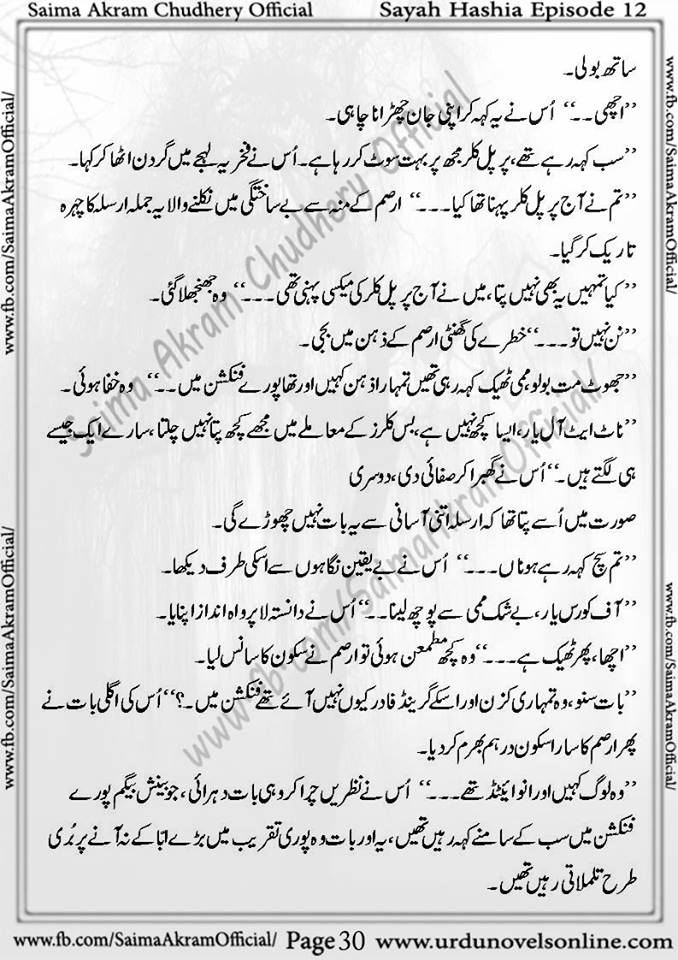 Saima Akram Chudhery Official Sayah Hashia Episode 12
ساتھ بولی۔
’’اچھی۔۔‘‘ اُس نے یہ کہہ کر اپنی جان چھڑانا چاہی۔
’’سب کہہ رہے تھے، پرپل کلر مجھ پر بہت سوٹ کر رہا ہے۔ اُس نے فخریہ لہجے میں گردن اٹھا کر کہا۔
’’تم نے آج پرپل کلر پہنا تھا کیا۔۔۔‘‘ ارصم کے منہ سے بے ساختگی میں نکلنے والا یہ جملہ ارسلہ کا چہرہ
تاریک کر گیا۔
’’کیا تمہیں یہ بھی نہیں پتا، میں نے آج پرپل کلر کی میکسی پہنی تھی۔۔۔‘‘ وہ جھنجھلا گئی۔
’’نن نہیں تو۔۔۔‘‘ خطرے کی گھنٹی ارصم کے ذہن میں بجی۔
’’جھوٹ مت بولو، ممی ٹھیک کہہ رہی تھیں تمہارا ذہن کہیں اور تھا پورے فنکشن میں۔۔‘‘ وہ خفا ہوئی۔
’’ناٹ ایٹ آل یار، ایسا کچھ نہیں ہے، بس کلرز کے معاملے میں مجھے کچھ پتا نہیں چلتا، سارے ایک جیسے
ہی لگتے ہیں۔‘‘ اُس نے گھبرا کر صفائی دی، دوسری
صورت میں اُسے پتا تھا کہ ارسلہ اتنی آسانی سے یہ بات نہیں چھوڑے گی۔
’’تم سچ کہہ رہے ہو ناں۔۔۔‘‘ اُس نے بے یقین نگاہوں سے اسکی طرف دیکھا۔
’’آف کورس یار، بے شک ممی سے پوچھ لینا۔۔‘‘ اُس نے دانستہ لاپرواہ انداز اپنایا۔
’’اچھا، پھر ٹھیک ہے۔۔۔‘‘ وہ کچھ مطمعن ہوئی تو ارصم نے سکون کا سانس لیا۔
’’بات سنو، وہ تمہاری کزن اور اسکے گرینڈ فادر کیوں نہیں آئے تھے فنکشن میں۔؟‘‘ اُس کی اگلی بات نے
پھر ارصم کا سارا سکون درہم بھرم کر دیا۔
’’وہ لوگ کہیں اور انوائیٹڈ تھے۔۔۔‘‘ اُس نے نظریں چرا کر وہی بات دہرائی، جو بینش بیگم پورے
فنکشن میں سب کے سامنے کہہ رہیں تھیں، یہ اور بات وہ پوری تقریب میں بڑے ابّا کے نہ آنے پر بُری
طرح تلملاتی رہیں تھیں۔
www.fb.com/SaimaAkramOfficial/ Page 30 www.urdunovelsonline.com
www.fb.com/SaimaAkramOfficial/
www.fb.com/SaimaAkramOfficial/
www.fb.com/SaimaAkramOfficial/
www.fb.com/SaimaAkramOfficial/
Saima Akram Chudhery Official
www.fb.com/SaimaAkramOfficial/